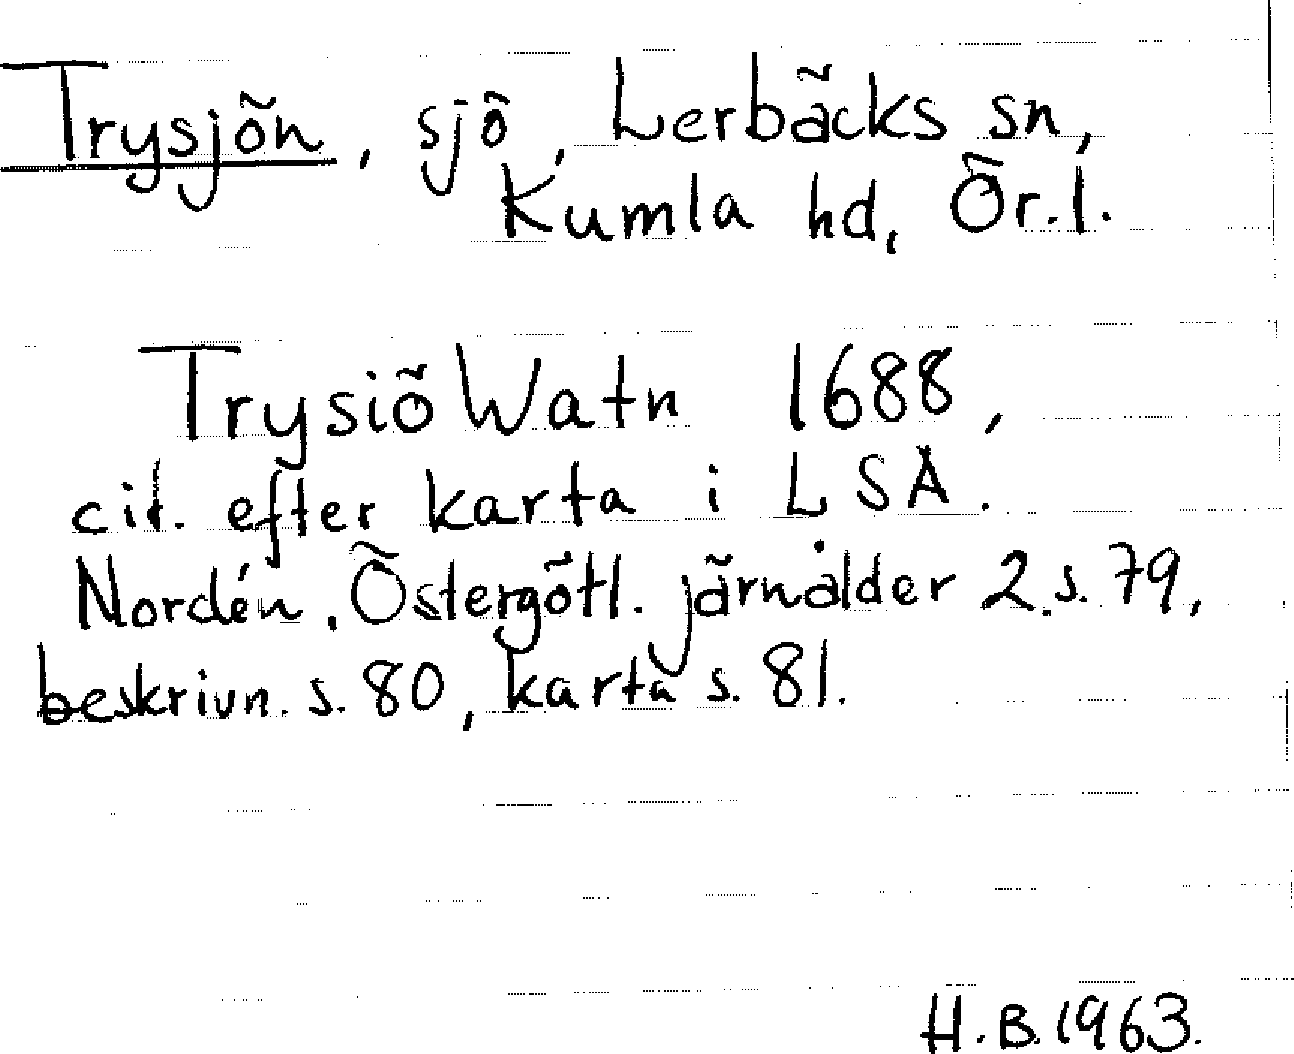 Trysjön, sjö, Lerbäcks sn,
Kumla hd, Ör.l.
Trysiö Watn 1688,
cit. efter karta i LSA.
Nordén. Östergötl. järnålder 2.s.79,
beskrivn. s. 80, karta s. 81.
H.B.1963.